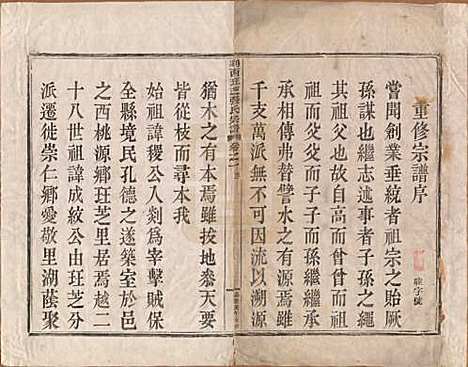 重修宗譜序
嘗聞創業垂統者祖宗之貽厥
孫謀也繼志述事者子孫之繩
其祖武也故自祖而父自父而祖
祖而父父而子子而孫繼繼承
承相傳弗替譬水之有源焉雖
千支萬派無不可因流以溯源
猶木之有本焉雖拔地參天要
皆從枝而尋本我
始祖諱稷公入剡為宰擊賊保
全縣境民孔德之遂築室於邑
之西桃源鄉玨芝里居焉越二
十八世祖諱成紋公由玨芝分
派遷徙崇仁鄉愛敬里湖蔭聚